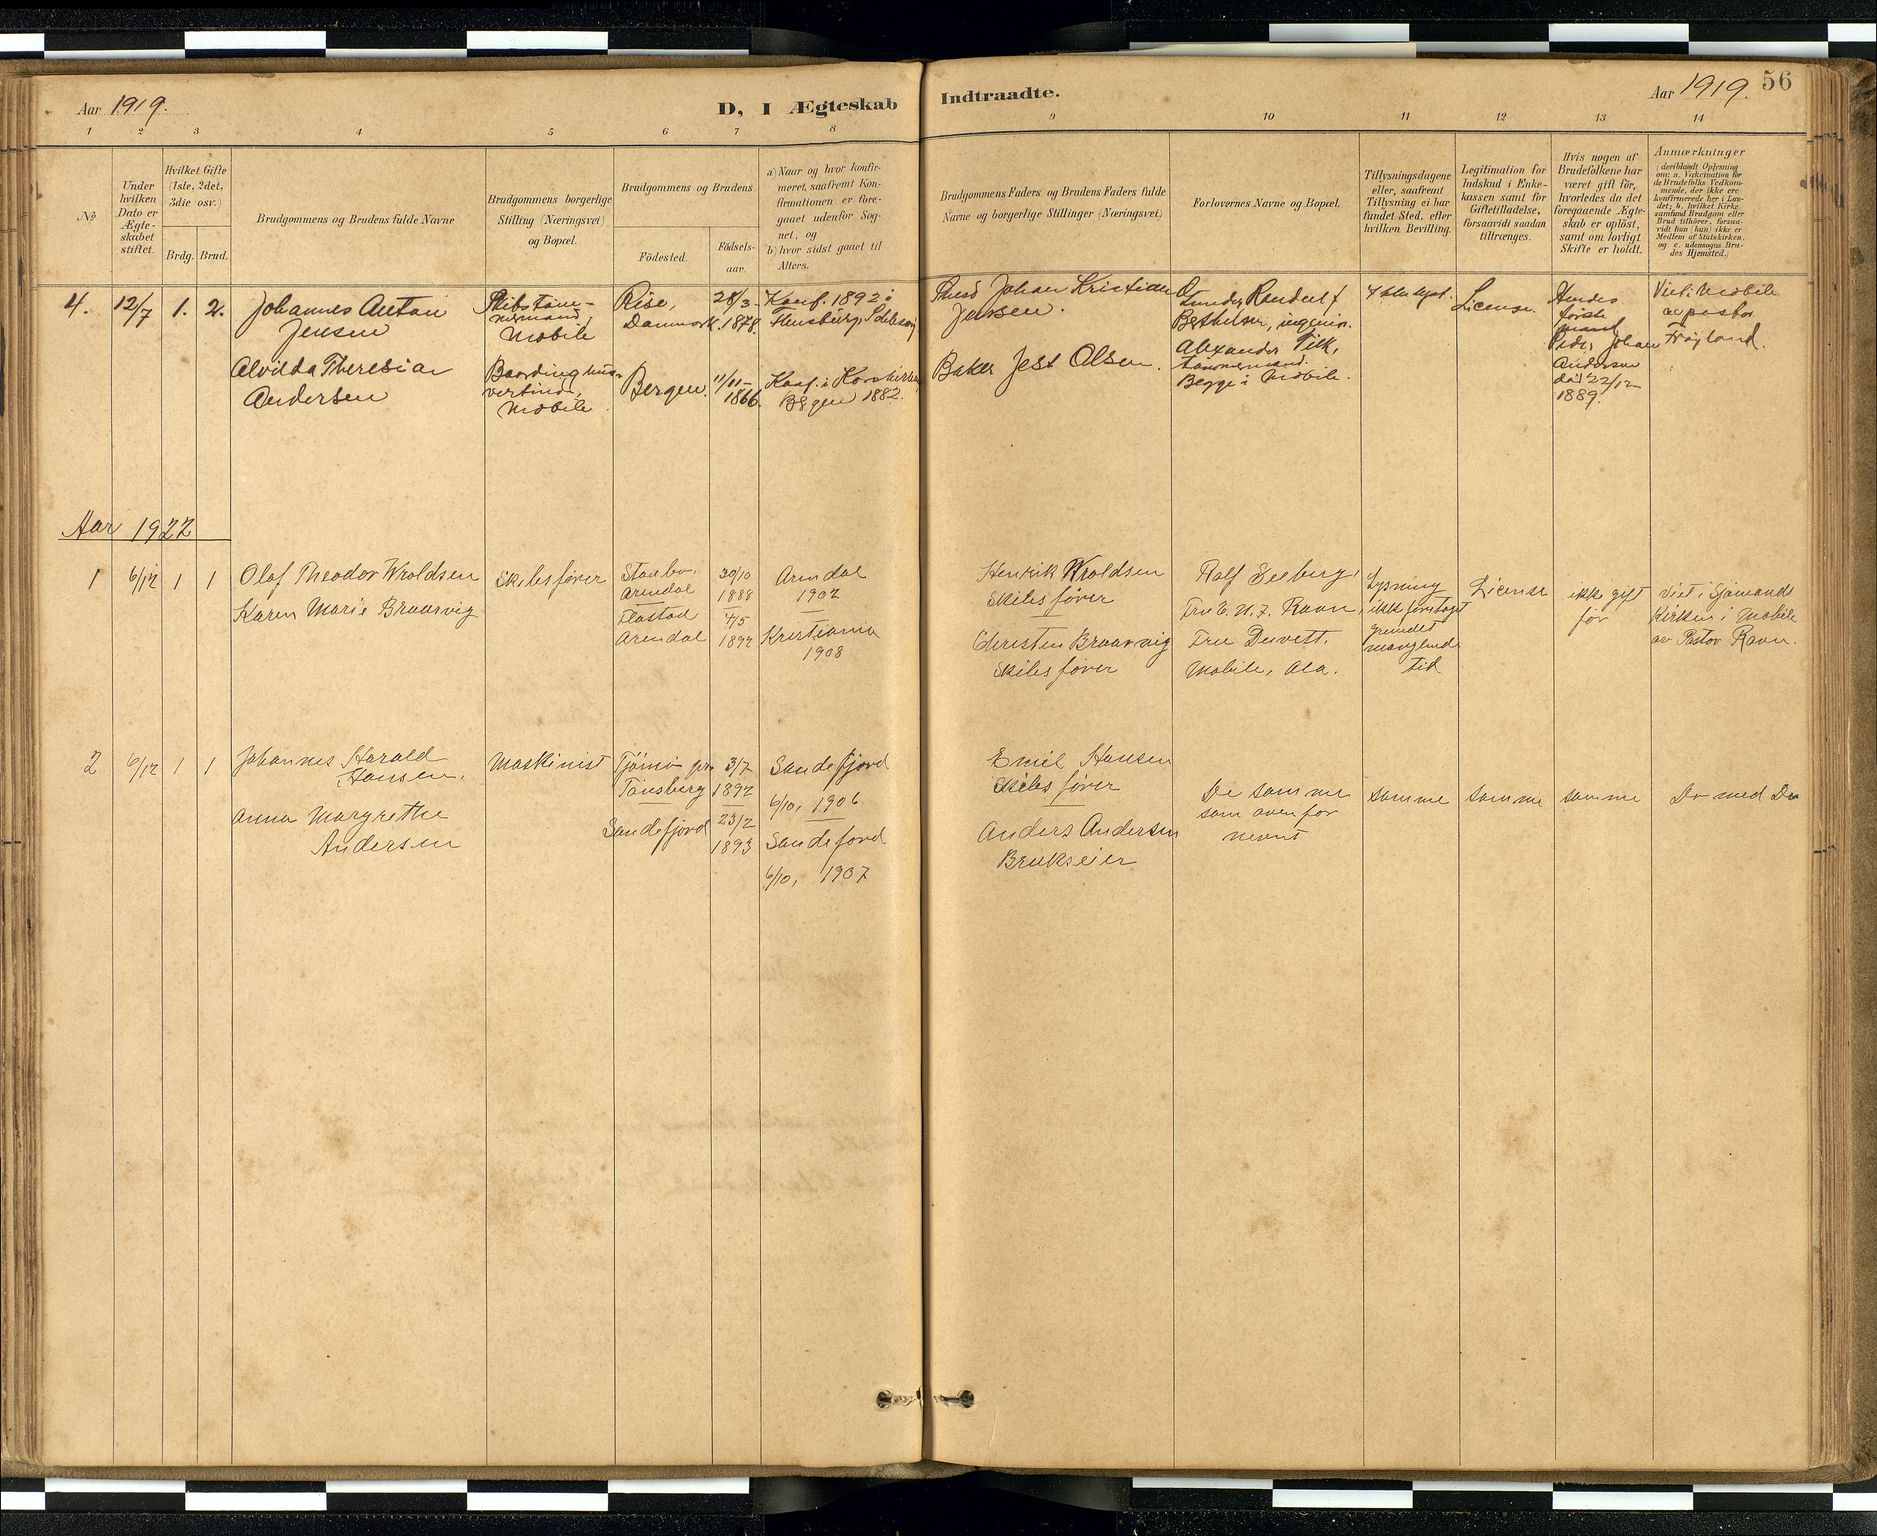 Aar 1919.
D, I Ægteskab
Indtraadte.
Aar 1919.
56
1 2 3 4 5 6 7 8 9 10 11 12 13 14
No
Under
hvilken
Dato er
Ægte-
skabet
stiftet.
Hvilket Gifte
(1ste, 2det,
3die osv.)
Brdg. Brud.
Brudgommens og Brudens fulde Navne
Brudgommens borgerlige
Stilling (Næringsvei)
og Bopæl.
Brudgommens og Brudens
Födested.
Födsels-
aar.
a) Naar og hvor konfir-
meret, saafremt Kon-
firmationen er fore-
gaaet udenfor Sog-
net; og
b) hvor sidst gaaet til
Alters.
Brudgommens Faders og Brudens Faders fulde
Navne og borgerlige Stillinger (Næringsvei)
Forlovernes Navne og Bopæl.
Tillysningsdagene
eller, saafremt
Tillysning ei har
fundet Sted, efter
hvilken Bevilling.
Legitimation for
Indskud i Enke-
kassen samt for
Giftetilladelse,
forsaavidt saadan
tiltrænges.
Hvis nogen af
Brudefolkene har
været gift för,
hvorledes da det
foregaaende Ægte-
skab er oplöst,
samt om lovligt
Skifte er holdt.
Anmærkninger
deriblandt Oplysning
om: a. Vakcination for
de Brudefolks Vedkom-
mende, der ikke ere
konfirmerede her i Lan-
det; b. hvilket Kirke-
samfund Brudgom eller
Brud tilhörer, forsaa-
vidt han (hun) ikke er
Medlem af Statskirken.
og c. udensogns Bru-
des Hjemsted.)
4. 12/7 1. 2.
Johannes Anton
Jensen
Alvilda Theresia
Andersen
Skibstøm-
mermand,
Mobile
Boardinghus-
vertinde,
Mobile.
Rise,
Danmark.
Bergen.
28/3-
1878.
11/11-
1866.
Konf. 1892 i
Flensburg,
Konf. i Korskirken,
Bergen 1882.
Johan Kristian
Jensen.
Baker Jest Olsen.
Gunder Randulf
Berthelsen, ingeniør.
Alexander Pilk,
tømmermand.
Begge i Mobile.
Ikke lyst.
License.
Hendes
første
mand
Peder Johan
Andersen
død 22/12-
1889.
Viet i Mobile
av pastor
Frøyland.
Aar 1922
1 6/12 1 1
Olaf Theodor Wroldsen
Karen Marie Braarvig
Skibsfører
Stoubo,
Arendal
Flostad
Arendal
30/10
1888
4/5
1892
Arendal
1902
Kristiania
1908
Henrik Wroldsen
Skibsfører
Christen Braarvig
Skibsfører
Rolf Seeberg,
Fru E. N. Z. Ravn,
Fru Duvett.
Mobile, Ala.
Lysning
ikke foretaget
grundet
manglende
tid
License
ikke gift
før
Viet i Sjømands
Kirken i Mobile
av Pastor Ravn.
2 6/12 1 1
Johannes Harald
Hansen.
Anna Margrethe
Andersen
Maskinist
Tjømø pr.
Tønsberg
Sandefjord
3/7
1892
23/2
1893
Sandefjord
6/10, 1906
Sandefjord
6/10, 1907
Emil Hansen
Skibsfører
Anders Andersen
Brukseier
De samme
som oven for
nevnt
samme
samme
samme
Do med Do